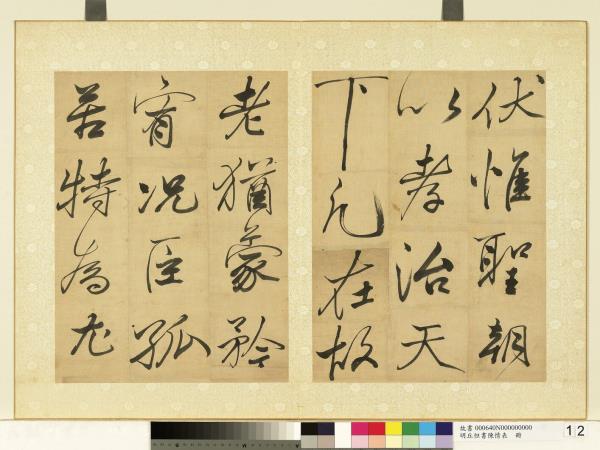 伏惟聖朝
以孝治天
下凡在故
老猶蒙矜
育況臣孤
苦特為尤
故書 000640N000000000
書陳情表 冊
12